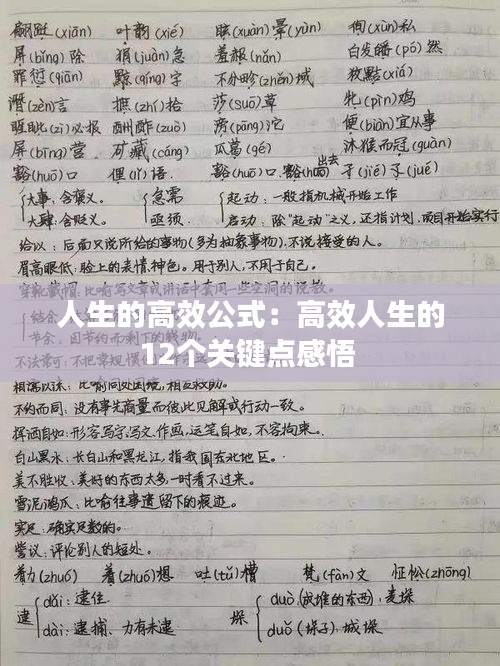 翩跹(xiān) 叶韵(xié) 眩(xuàn)晕(yùn) 徇(xùn)私
屏(bǐng)除 狷(juàn)急 羞赧(nǎn) 白发皤(pó)然
罪愆(qiān) 黥(qíng)字 不分畛(zhěn)域 狡黠(xiá)
谮(zèn)言 摭(zhí)拾 莎(suō)草 牝(pìn)鸡
睚眦(zì)必报 酬酢(zuò) 滂(pāng)沱 便(biàn)宜从事
屏(bīng)营 矿藏(cáng) 瓜葛(gé) 沐猴而冠(guàn)
豁(huō)口 俚(lǐ)语 豁(huō)口.豁(huō)出去 孑(jié)孓(jué)
大事:含褒义。 急需 起动:一般指机械开始工作
大肆:含贬义。 亟须 启动:除"起动"之义,还指计划、项目开始实行
给以:后面只说所给的事物(多为抽象事物),不说接受的人。
眉高眼低:脸上的表情神色。用于别人,不用于自己。
穿靴戴帽:比喻写文章或讲话中套用一些空洞的说教。
人生的高效公式:高效人生的
12个关键点感悟
结余
节余:因节约而剩下的钱物。
不法常可:不把常规惯
相濡以沫:比喻同处困境,相互救助。
不约而同:没有事先商量而彼此见解或行动一致。
挥洒自如:形容写字、写文、作画,运笔自如,不容拘束。
白山黑水:长白山和黑龙江,指我国东北地区。
美不胜收:美好的东西太多,一时看不过来。
雪泥鸿爪:比喻往事遗留下的痕迹。
实足:确实足数的。
訾议:评论别人的短处。
着力(zhuó) 着(zhuó)想 吐(tǔ)槽 梵(fàn)文 怔忪(zhōng)
逮 dǎi:逮住 垛 duò(成堆的东西):麦垛
dài:逮捕、力有未逮 duǒ(垛子):城垛